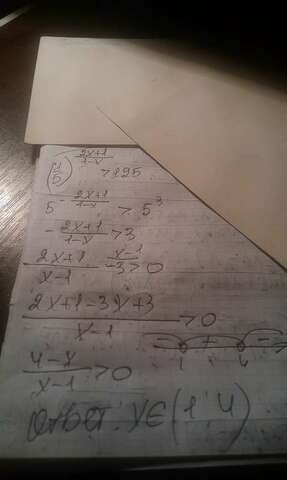 (1/5)^((2x+1)/(1-x)) > 125
5^(-(2x+1)/(1-x)) > 5^3
-(2x+1)/(1-x) > 3
(2x+1)/(x-1) -3^(x-1) > 0
(2x+1-3x+3)/(x-1) > 0
- + -
1 4
(4-x)/(x-1) > 0
Ответ: x∈(1 4)